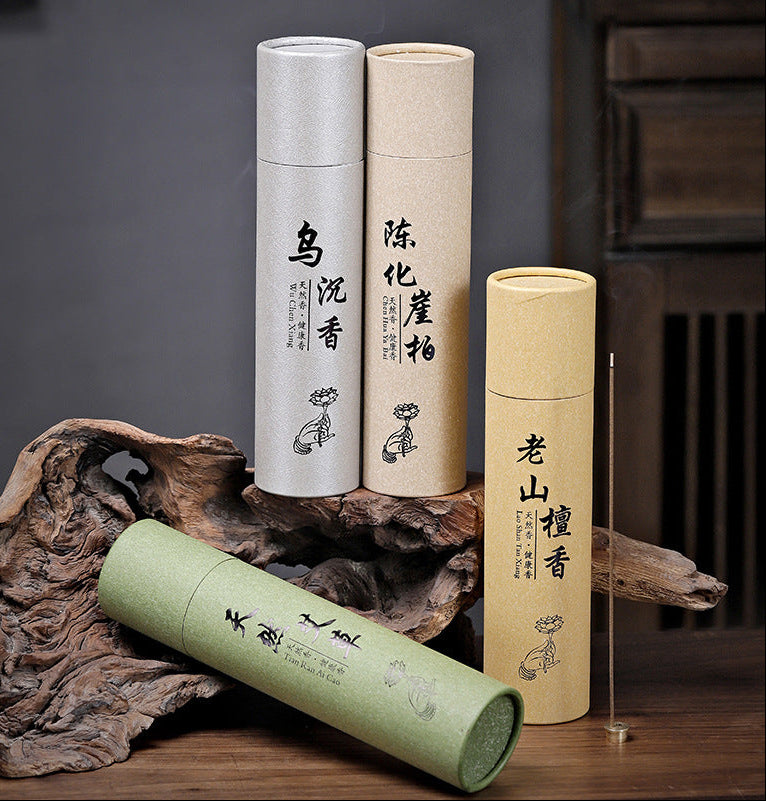 乌沉香
天然香·健康香
Wu Chen Xiang
陈化崖柏
天然香·健康香
Chen Hua Ya Bai
老山檀香
天然香·健康香
Lao Shan Tan Xiang
天然艾草
天然香·健康香
Tian Ran Ai Cao